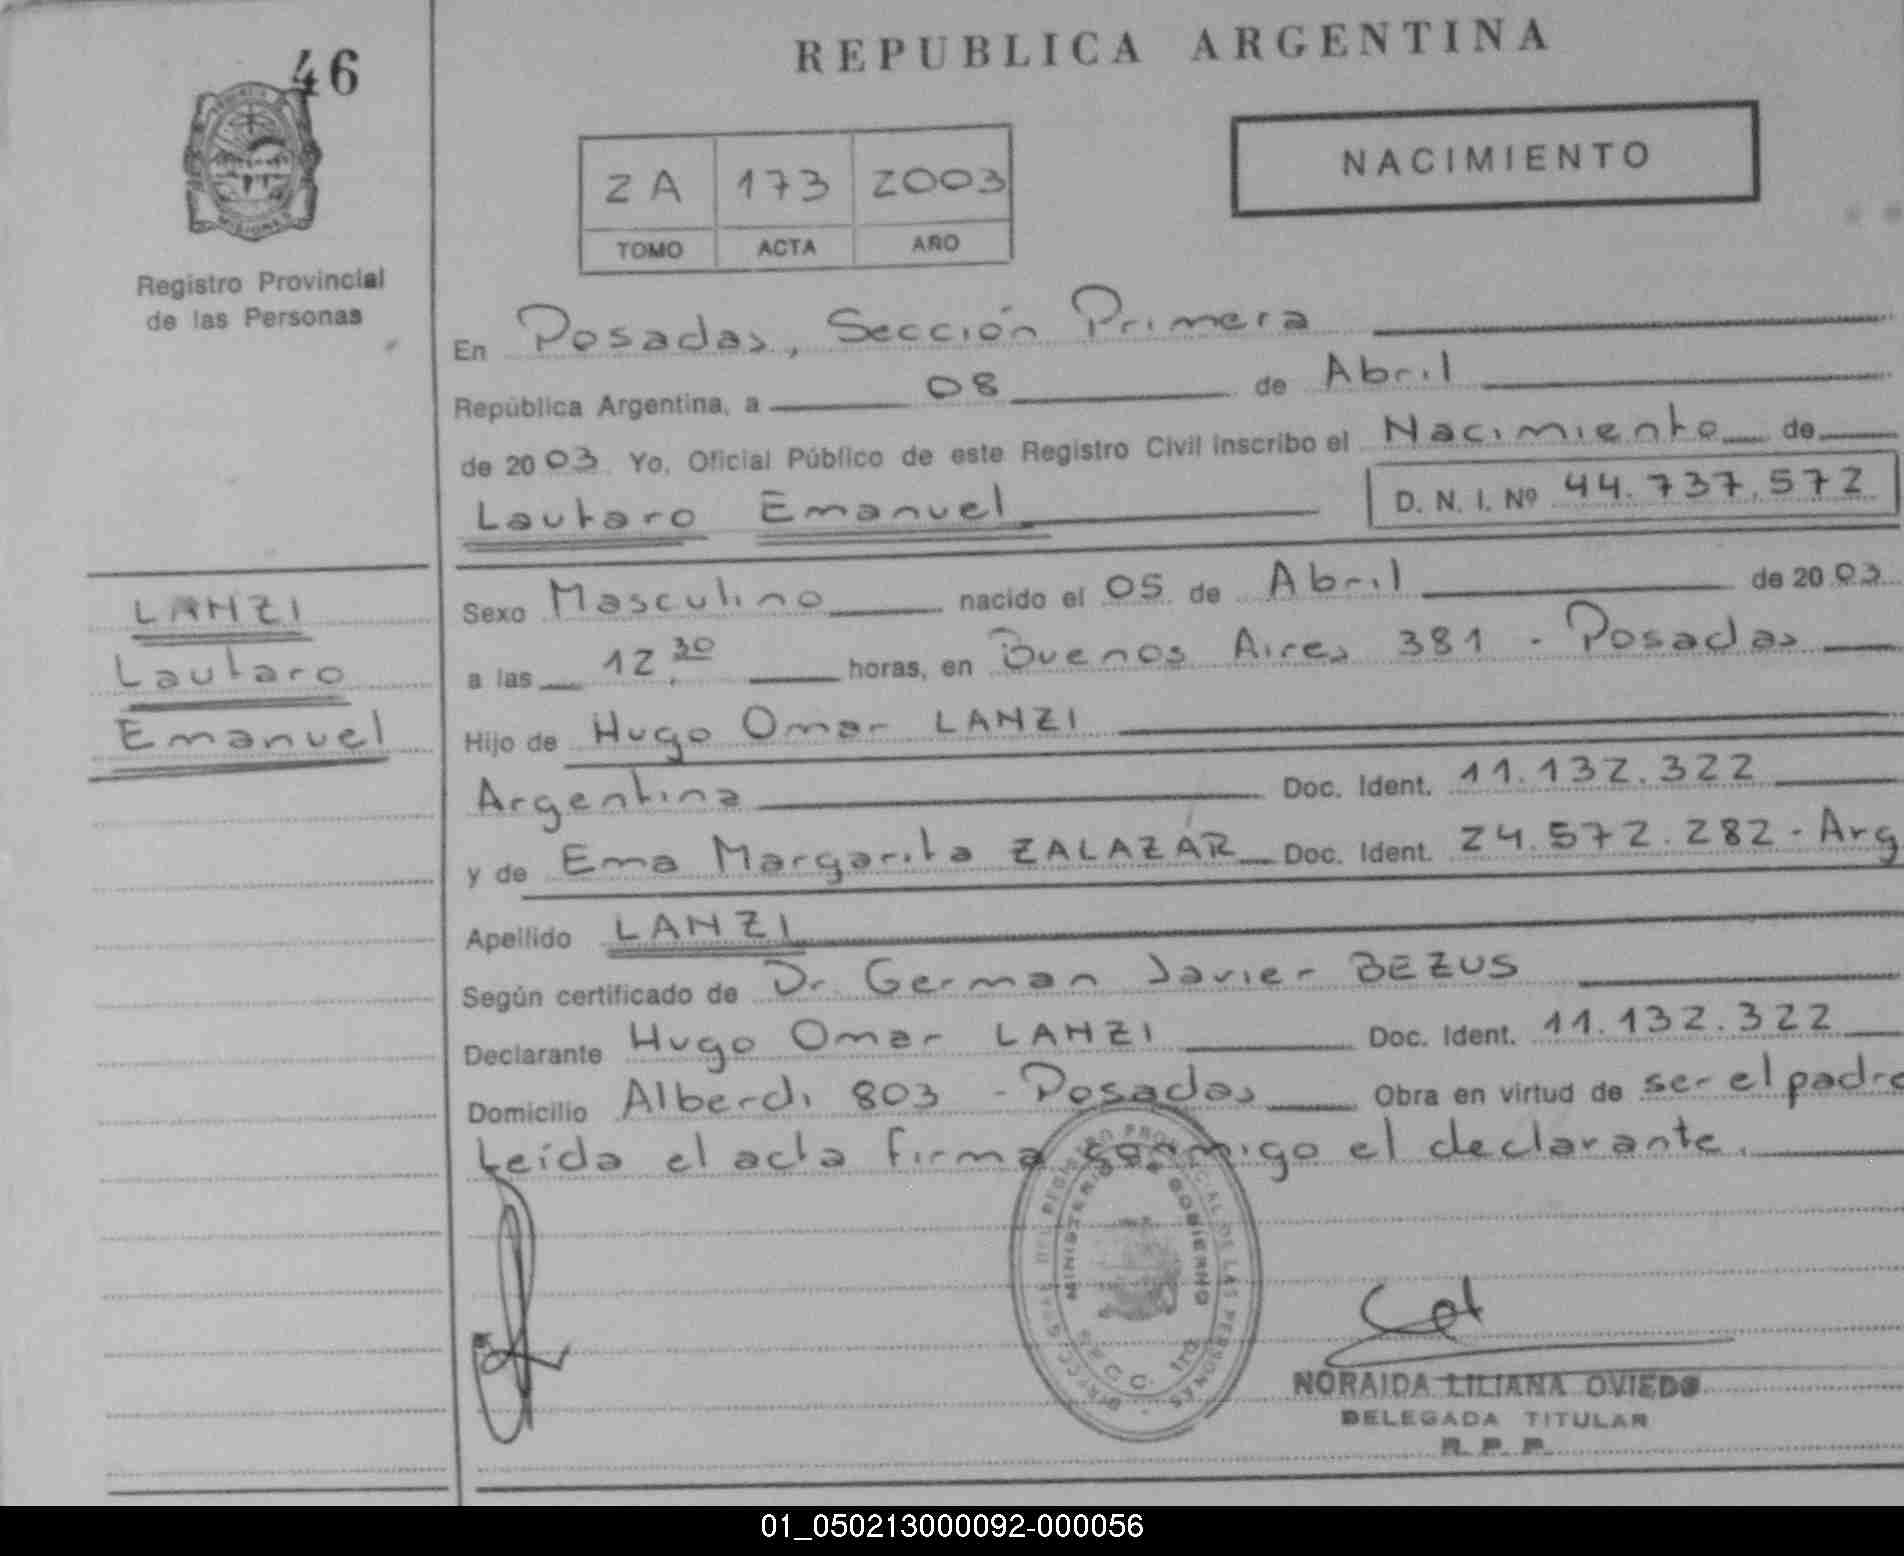 46
REPUBLICA ARGENTINA
NACIMIENTO
2A 173 2003
TOMO ACTA AÑO
Registro Provincial
de las Personas
En Posadas, Sección Primera
República Argentina, a 08 de Abril
de 2003 Yo, Oficial Público de este Registro Civil inscribo el Nacimiento de
Lautaro Emanuel D. N. I. Nº 44.737.572
LANZI
Lautaro
Emanuel
Sexo Masculino nacido el 05 de Abril de 2003
a las 12.30 horas, en Buenos Aires 381 - Posadas
Hijo de Hugo Omar LANZI
Argentina Doc. Ident. 11.132.322
y de Ema Margarita ZALAZAR Doc. Ident. 24.572.282 - Arg
Apellido LANZI
Según certificado de Dr. German Javier BEZUS
Declarante Hugo Omar LANZI Doc. Ident. 11.132.322
Domicilio Alberdi 803 - Posadas Obra en virtud de ser el padre
Leída el acta firma conmigo el declarante.
MINISTERIO DE GOBIERNO
NORAIDA LILIANA OVIEDO
DELEGADA TITULAR
R. P. P.
01_050213000092-000056